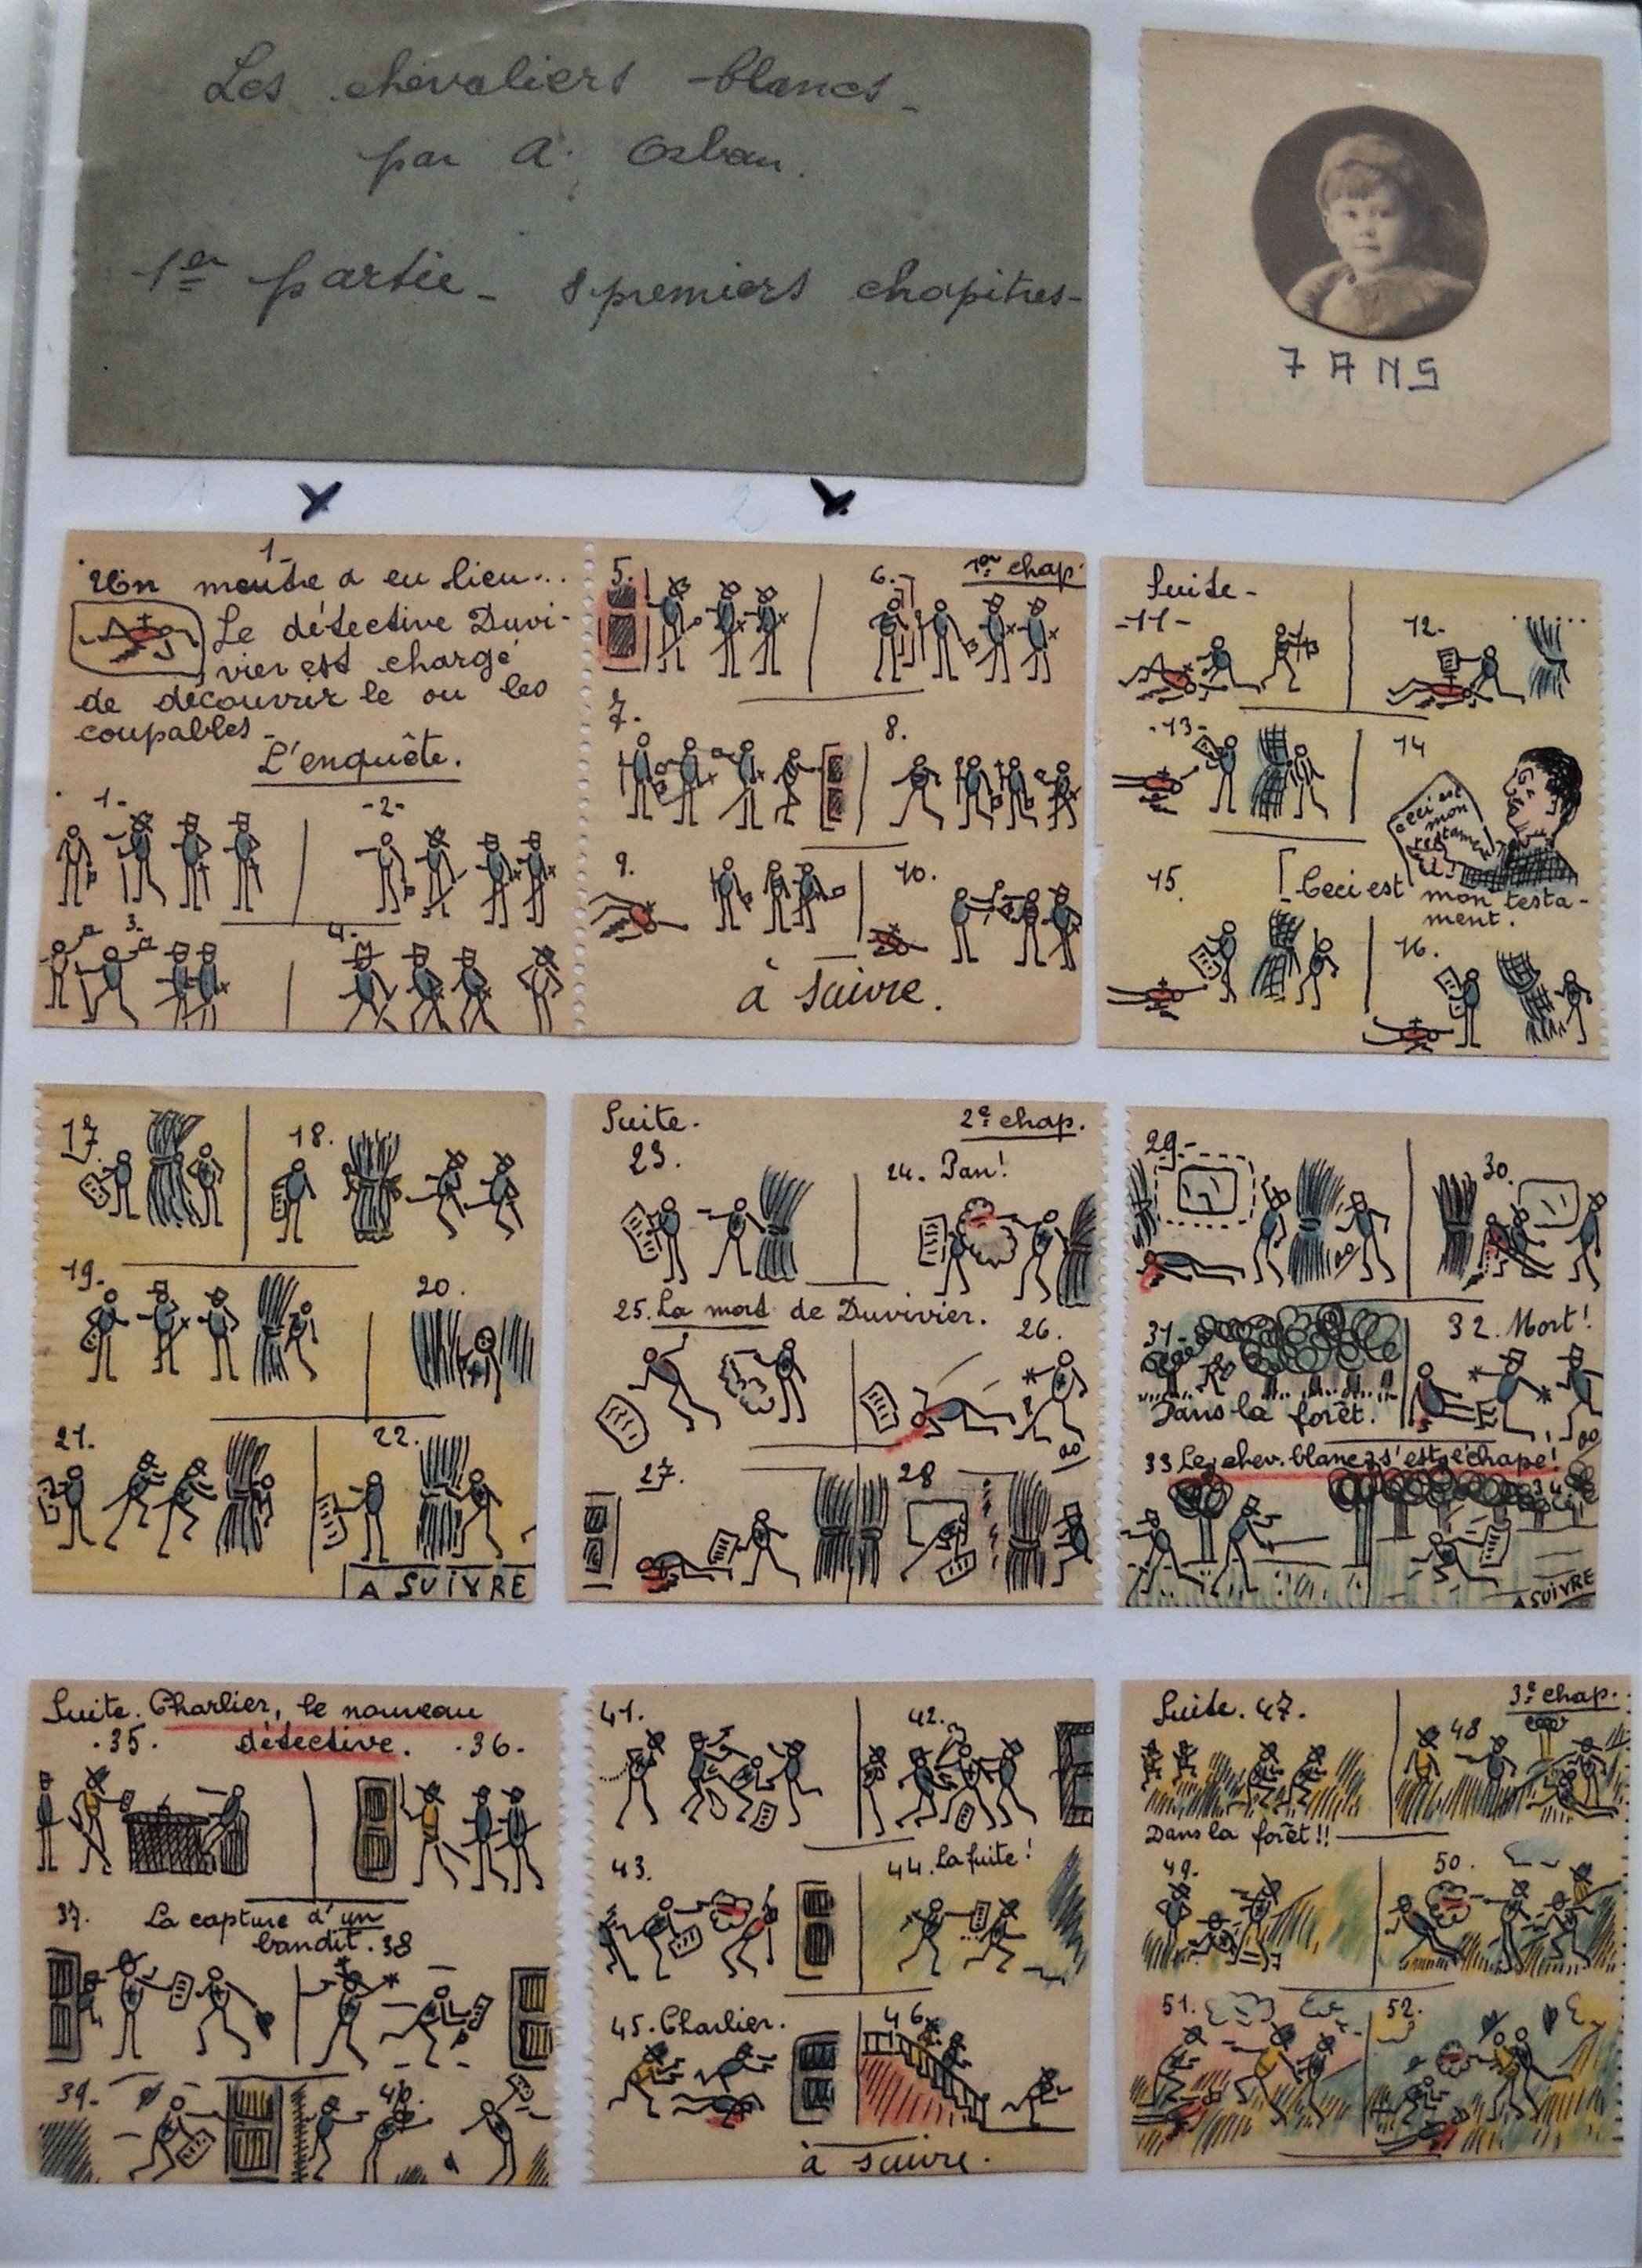 Les chevaliers blancs-
par A. Orban.
1er partie - 8 premiers chapitres-
7 ANS
1-
Un meutre a eu lieu...
Le détective Duvi-
vier est chargé
de découvrir le ou les
coupables-
L'enquête.
1-
-2-
3-
4-
5.
6.
1er chap.
7-
8.
9.
10.
à suivre.
Suite-
-11-
12-
-13-
14
ceci est
mon
testament
15.
Ceci est mon testa-
ment.
16.
17.
18.
19-
20.
21.
22.
A SUIVRE
Suite.
2e chap.
23.
24. Pan!
25. La mort de Duvivier.
26.
27.
28
29-
30.
31-
Dans la forêt.
32. Mort!
33 Le chev. blanc s'est échapé!
34.
A SUIVRE
Suite. Charlier, le nouveau
détective.
.35.
.36.
37. La capture d'un
bandit. 38
39-
40.
41.
42.
43.
44. La fuite!
45. Charlier.
46.
à suivre.
Suite. 47.
3e chap.
48
Dans la forêt!!
49.
50.
51.
52.